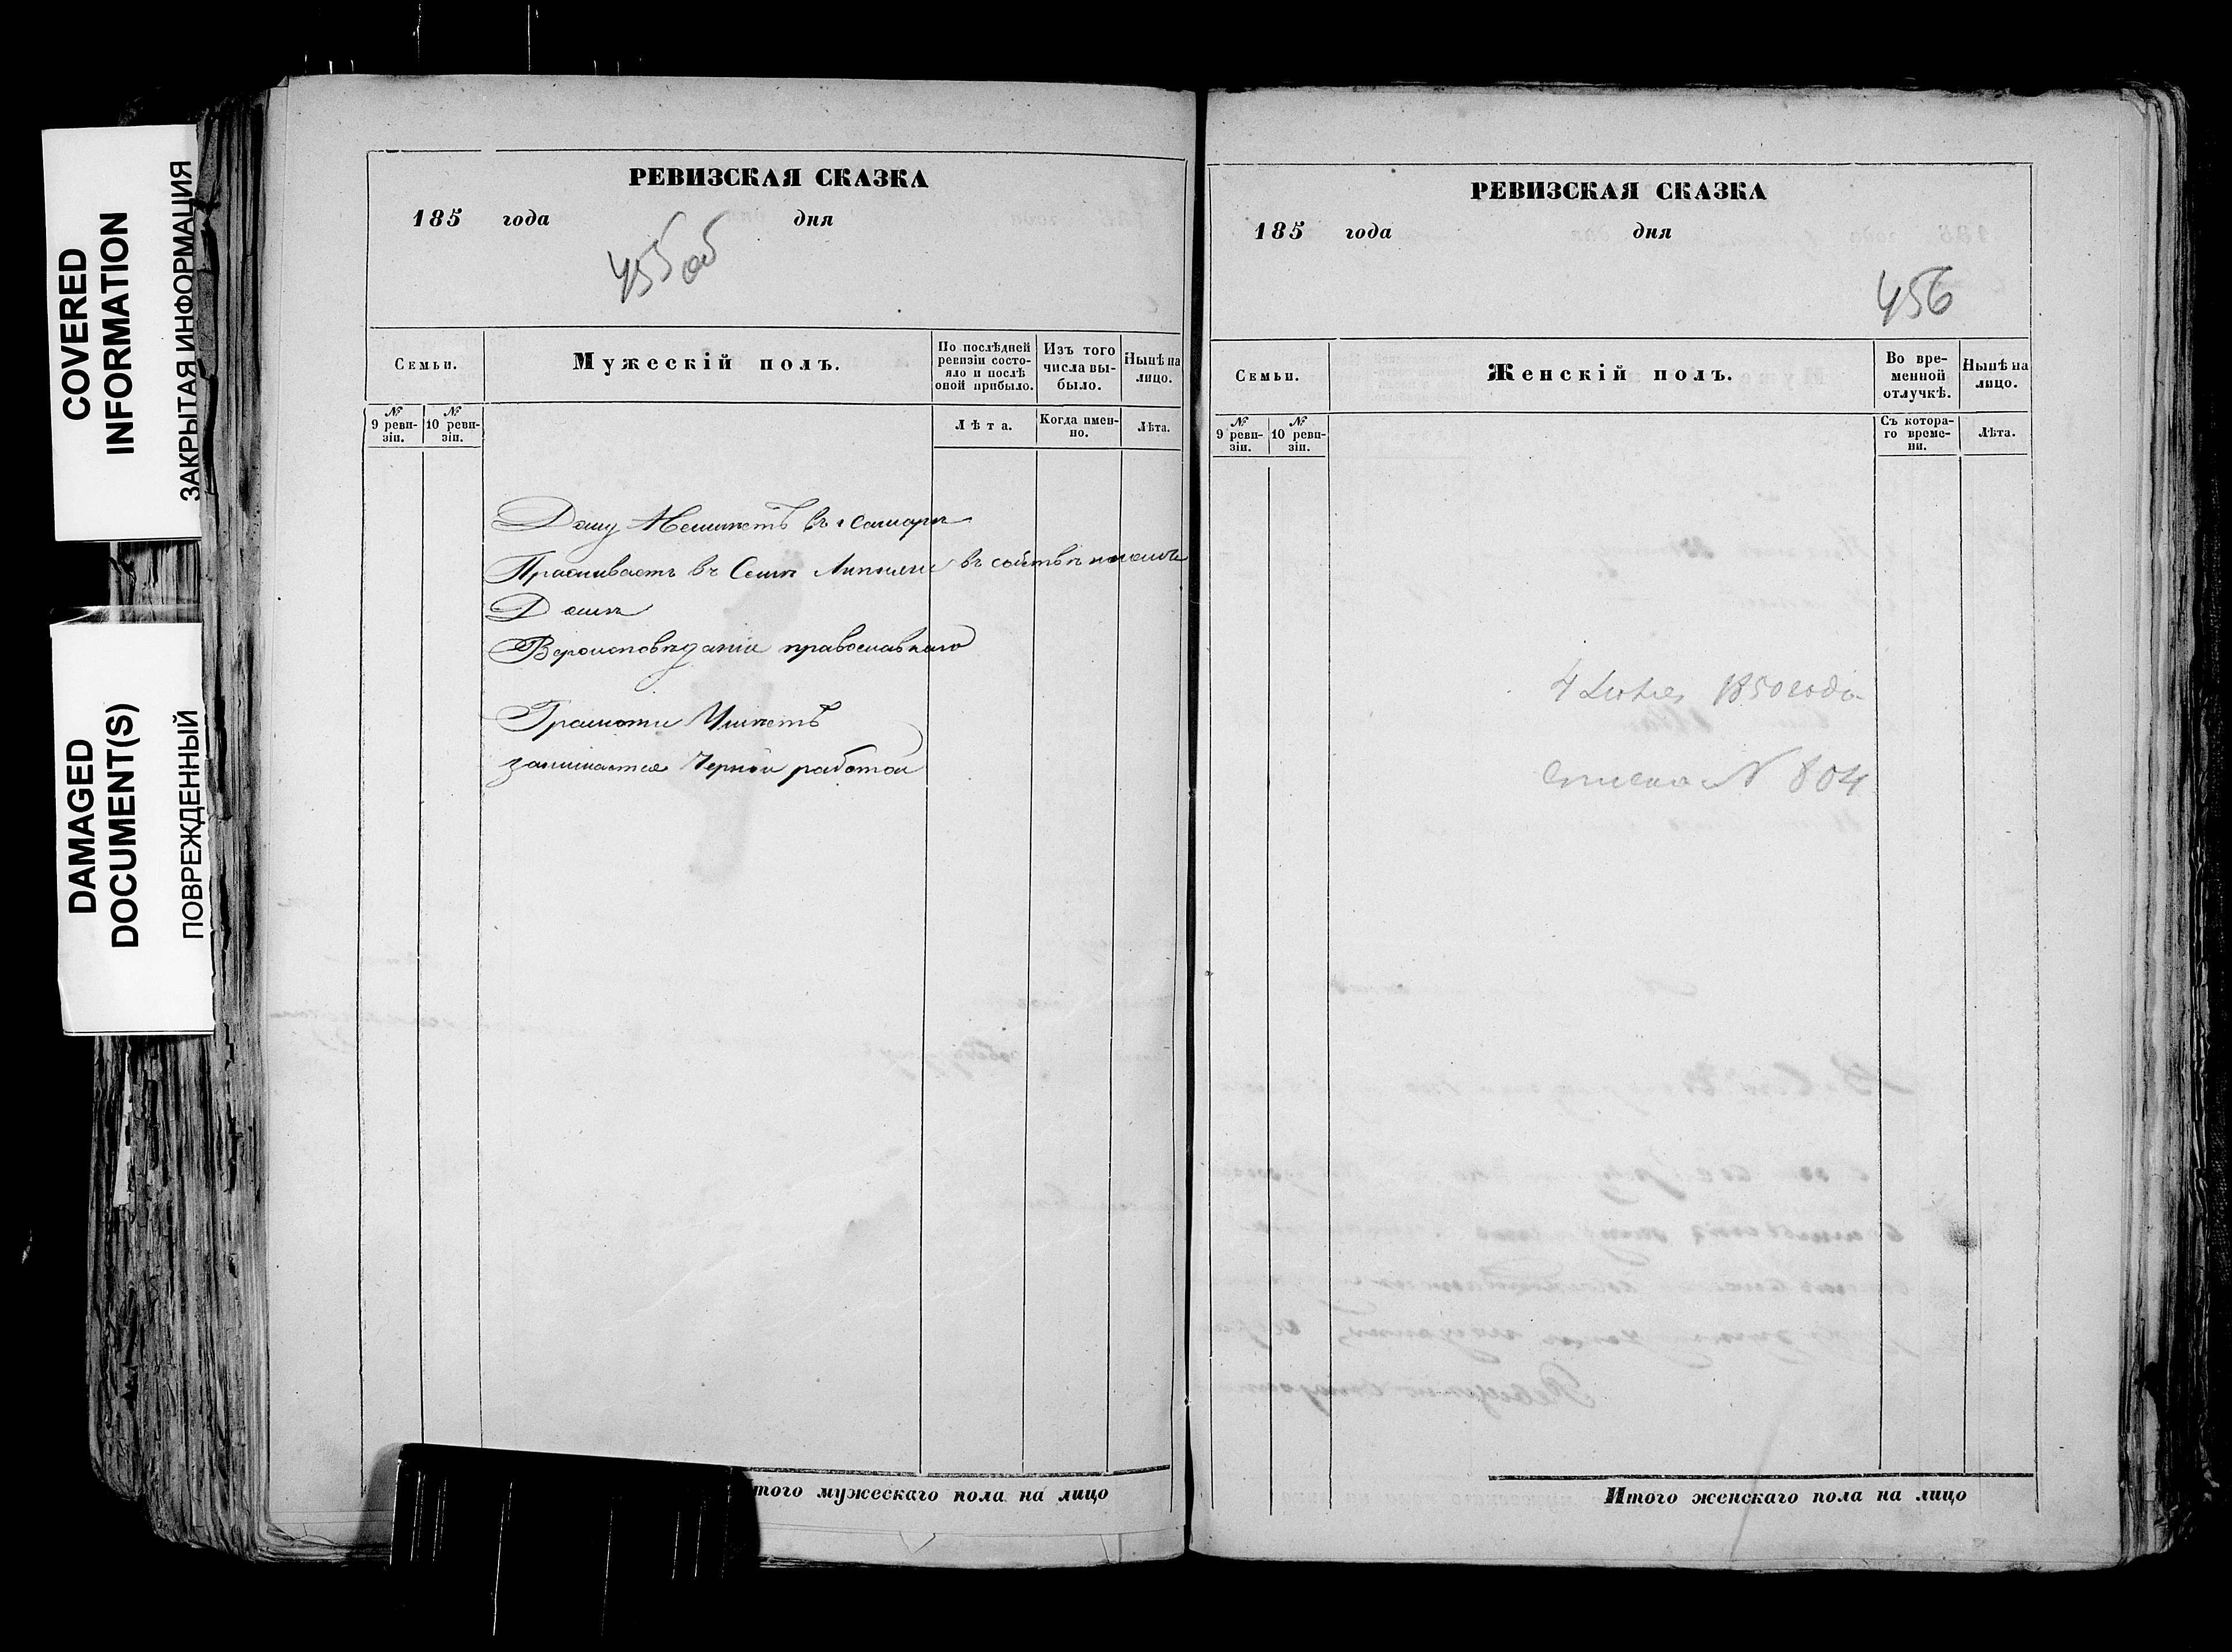 COVERED
INFORMATION
ЗАКРЫТАЯ ИНФОРМАЦИЯ
DAMAGED
DOCUMENT(S)
ПОВРЕЖДЕННЫЙ
РЕВИЗСКАЯ СКАЗКА
185 года дня
455 об
Семьи.
Мужескій полъ.
По послѣдней ревизіи состояло и послѣ оной прибыло.
Изъ того числа выбыло.
Нынѣ на лицо.
№ 9 ревизіи.
№ 10 ревизіи.
Лѣта.
Когда именно.
Лѣта.
Дому Неимѣетъ въ г Самарѣ
въ Семъ
Домѣ
Вероисповѣданія православнаго
Грамоти Умѣетъ
занимается Черной работой
Итого мужескаго пола на лицо
РЕВИЗСКАЯ СКАЗКА
185 года дня
456
Семьи.
Женскій полъ.
Во временной отлучкѣ.
Нынѣ на лицо.
№ 9 ревизіи.
№ 10 ревизіи.
Съ котораго времени.
Лѣта.
4 1850 года
списка № 804
Итого женскаго пола на лицо